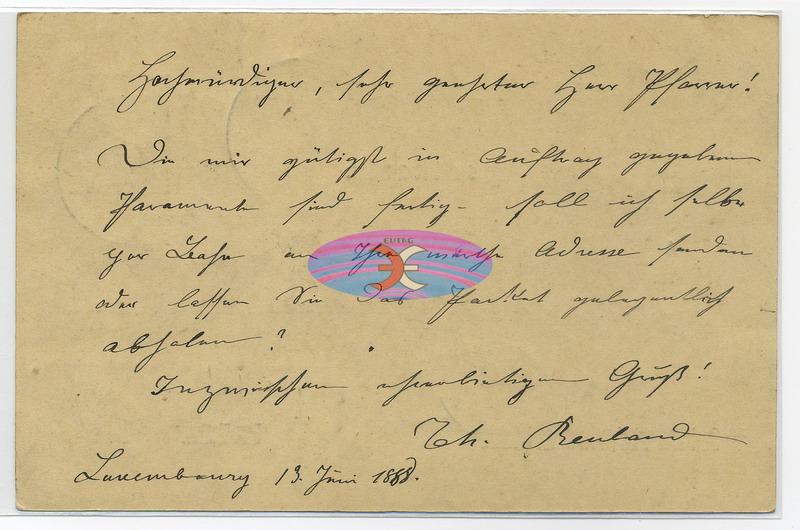 Hochwürdiger, sehr geehrter Herr Pfarrer!
Die mir gütigst in Auftrag gegebenen
Paramente sind fertig - soll ich selbe
per Bahn an Ihre werthe Adresse senden
EUTAG
oder lassen Sie das Packet gelegentlich
abholen?
Inzwischen ehrerbietigen Gruß!
Th. Reuland
Luxembourg 13. Juni 1888.